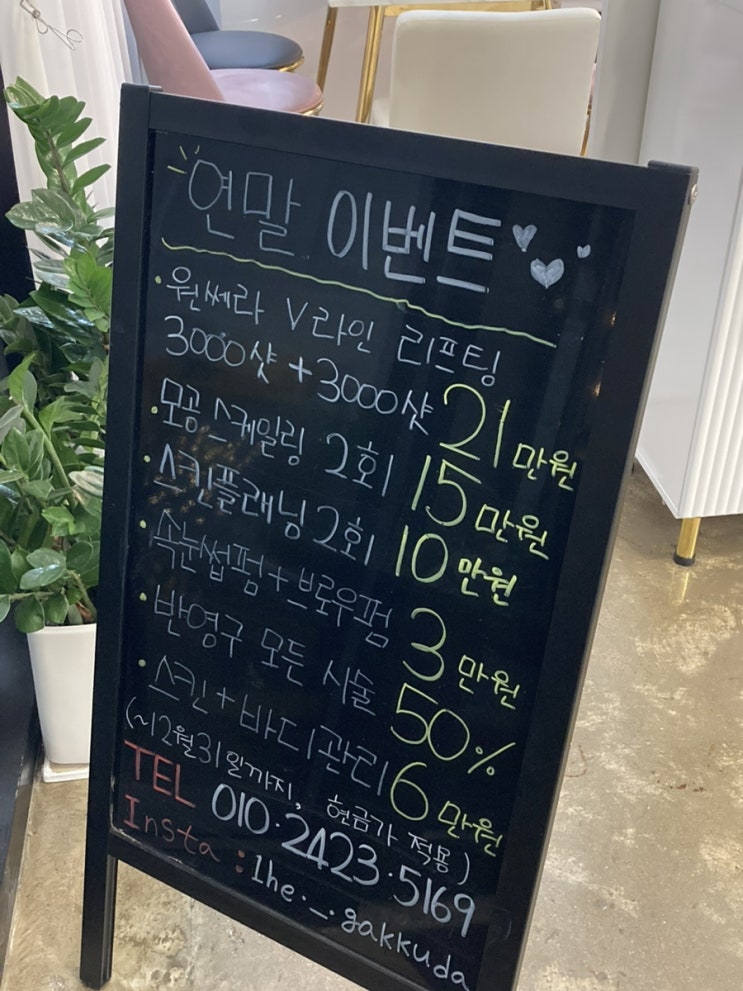 연말 이벤트
· 원쎄라 V라인 리프팅
3000샷 + 3000샷 21만원
· 모공 스케일링 2회 15만원
· 스킨플래닝 2회 10만원
· 속눈썹펌 + 브로우펌 3만원
· 반영구 모든 시술 50%
· 스킨 + 바디관리 6만원
(~12월31일까지, 현금가 적용)
TEL 010·2423·5169
Insta : 1he._.gakkuda